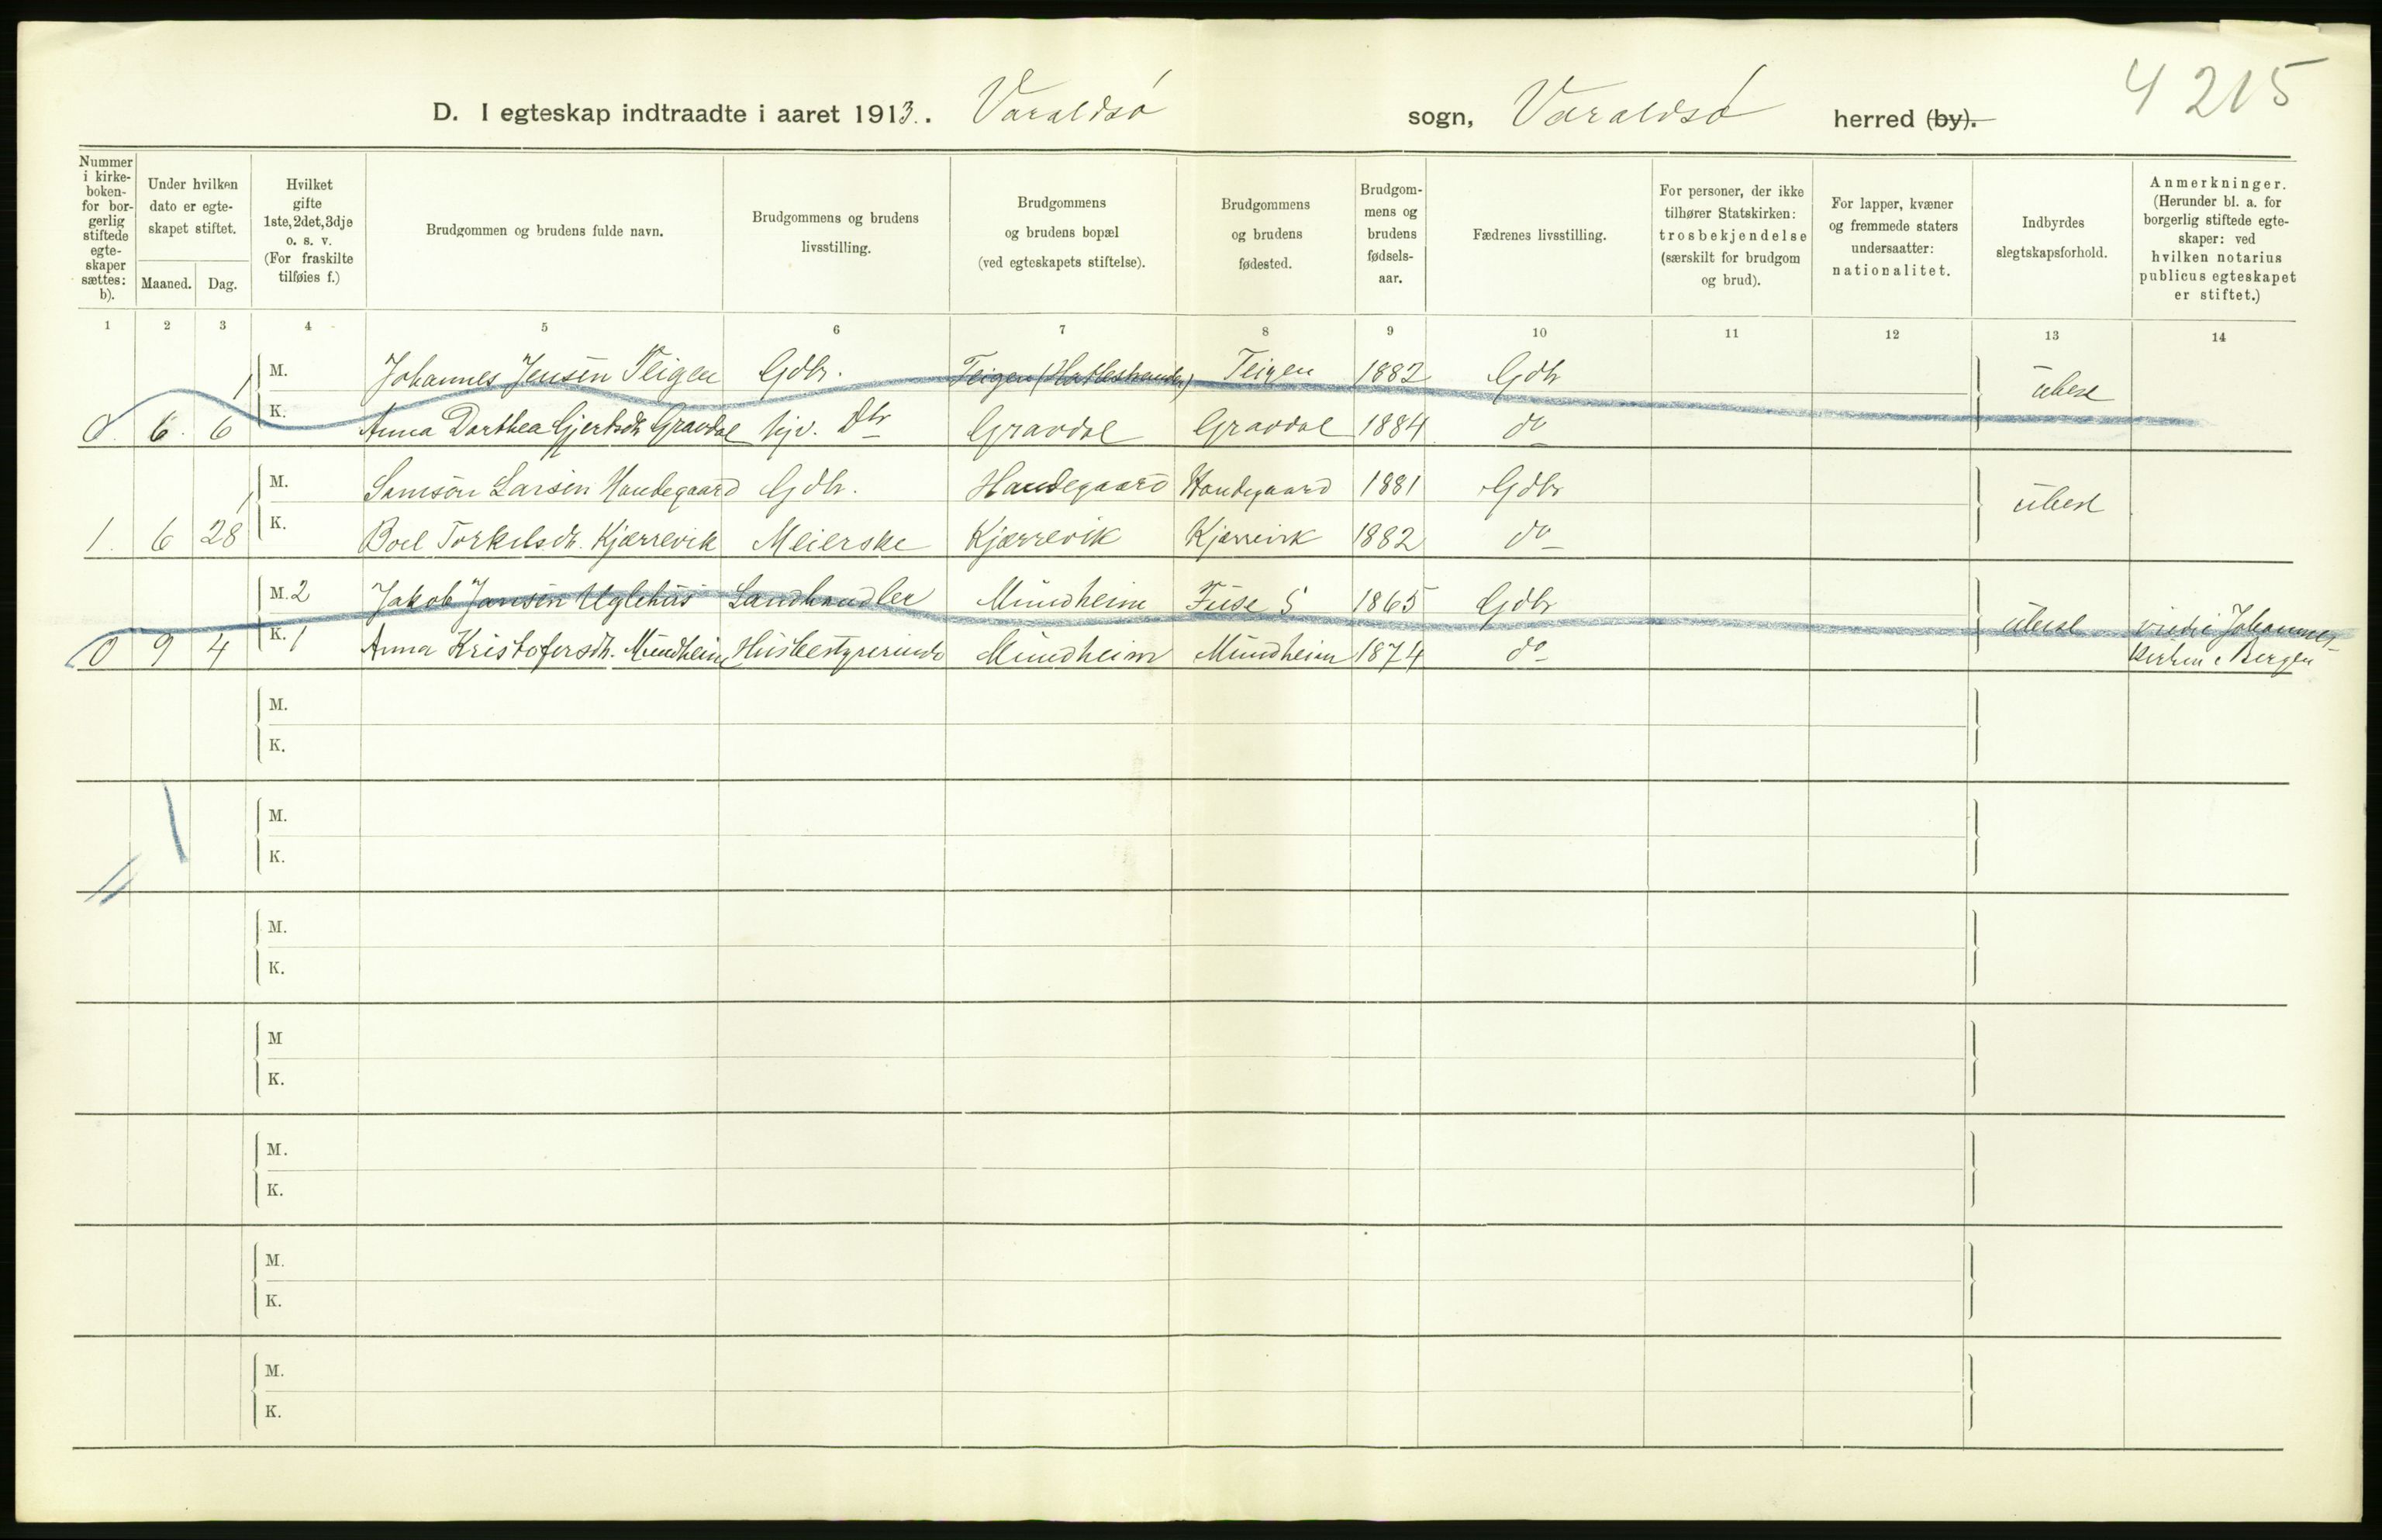 4 215
D. I egteskap indtraadte i aaret 1913. Varaldsø sogn, Varaldsø herred (by).
Nummer i kirkeboken for borgerlig stiftede egteskaper sættes: b).
Under hvilken dato er egteskapet stiftet.
Maaned. Dag.
Hvilket gifte 1ste, 2det, 3dje o. s. v. (For fraskilte tilføies f.)
Brudgommen og brudens fulde navn.
Brudgommens og brudens livsstilling.
Brudgommens og brudens bopæl (ved egteskapets stiftelse).
Brudgommens og brudens fødested.
Brudgommens og brudens fødselsaar.
Fædrenes livsstilling.
For personer, der ikke tilhører Statskirken: trosbekjendelse (særskilt for brudgom og brud).
For lapper, kvæner og fremmede staters undersaatter: nationalitet.
Indbyrdes slegtskapsforhold.
Anmerkninger. (Herunder bl. a. for borgerlig stiftede egteskaper: ved hvilken notarius publicus egteskapet er stiftet.)
1 2 3 4 5 6 7 8 9 10 11 12 13 14
1 M. Johannes Jensen Teigen Gdbr. Teigen (Hatlestranden) Teigen 1882 Gdbr ubesl
0. 6. 6 K. Anna Dorthea Gjertsdtr Gravdal Gravdal Gravdal 1884 do
1 M. Samson Larsen Handegaard Gdbr. Handegaard Handegaard 1881 Gdbr ubesl
1. 6 28 K. Boel Torkelsdtr. Kjærrevik Meierske Kjærrevik Kjærrevik 1882 do
M. 2 Jakob Jansen Uglehus Landhandler Mundheim Fuse S 1865 Gdbr ubesl viede i Johannes-
0 9 4 K. 1 Anna Kristofersdtr. Mundheim Husbestyrerinde Mundheim Mundheim 1874 do kirken i Bergen
M.
K.
M.
K.
M.
K.
M
K.
M.
K.
M.
K.
M.
K.